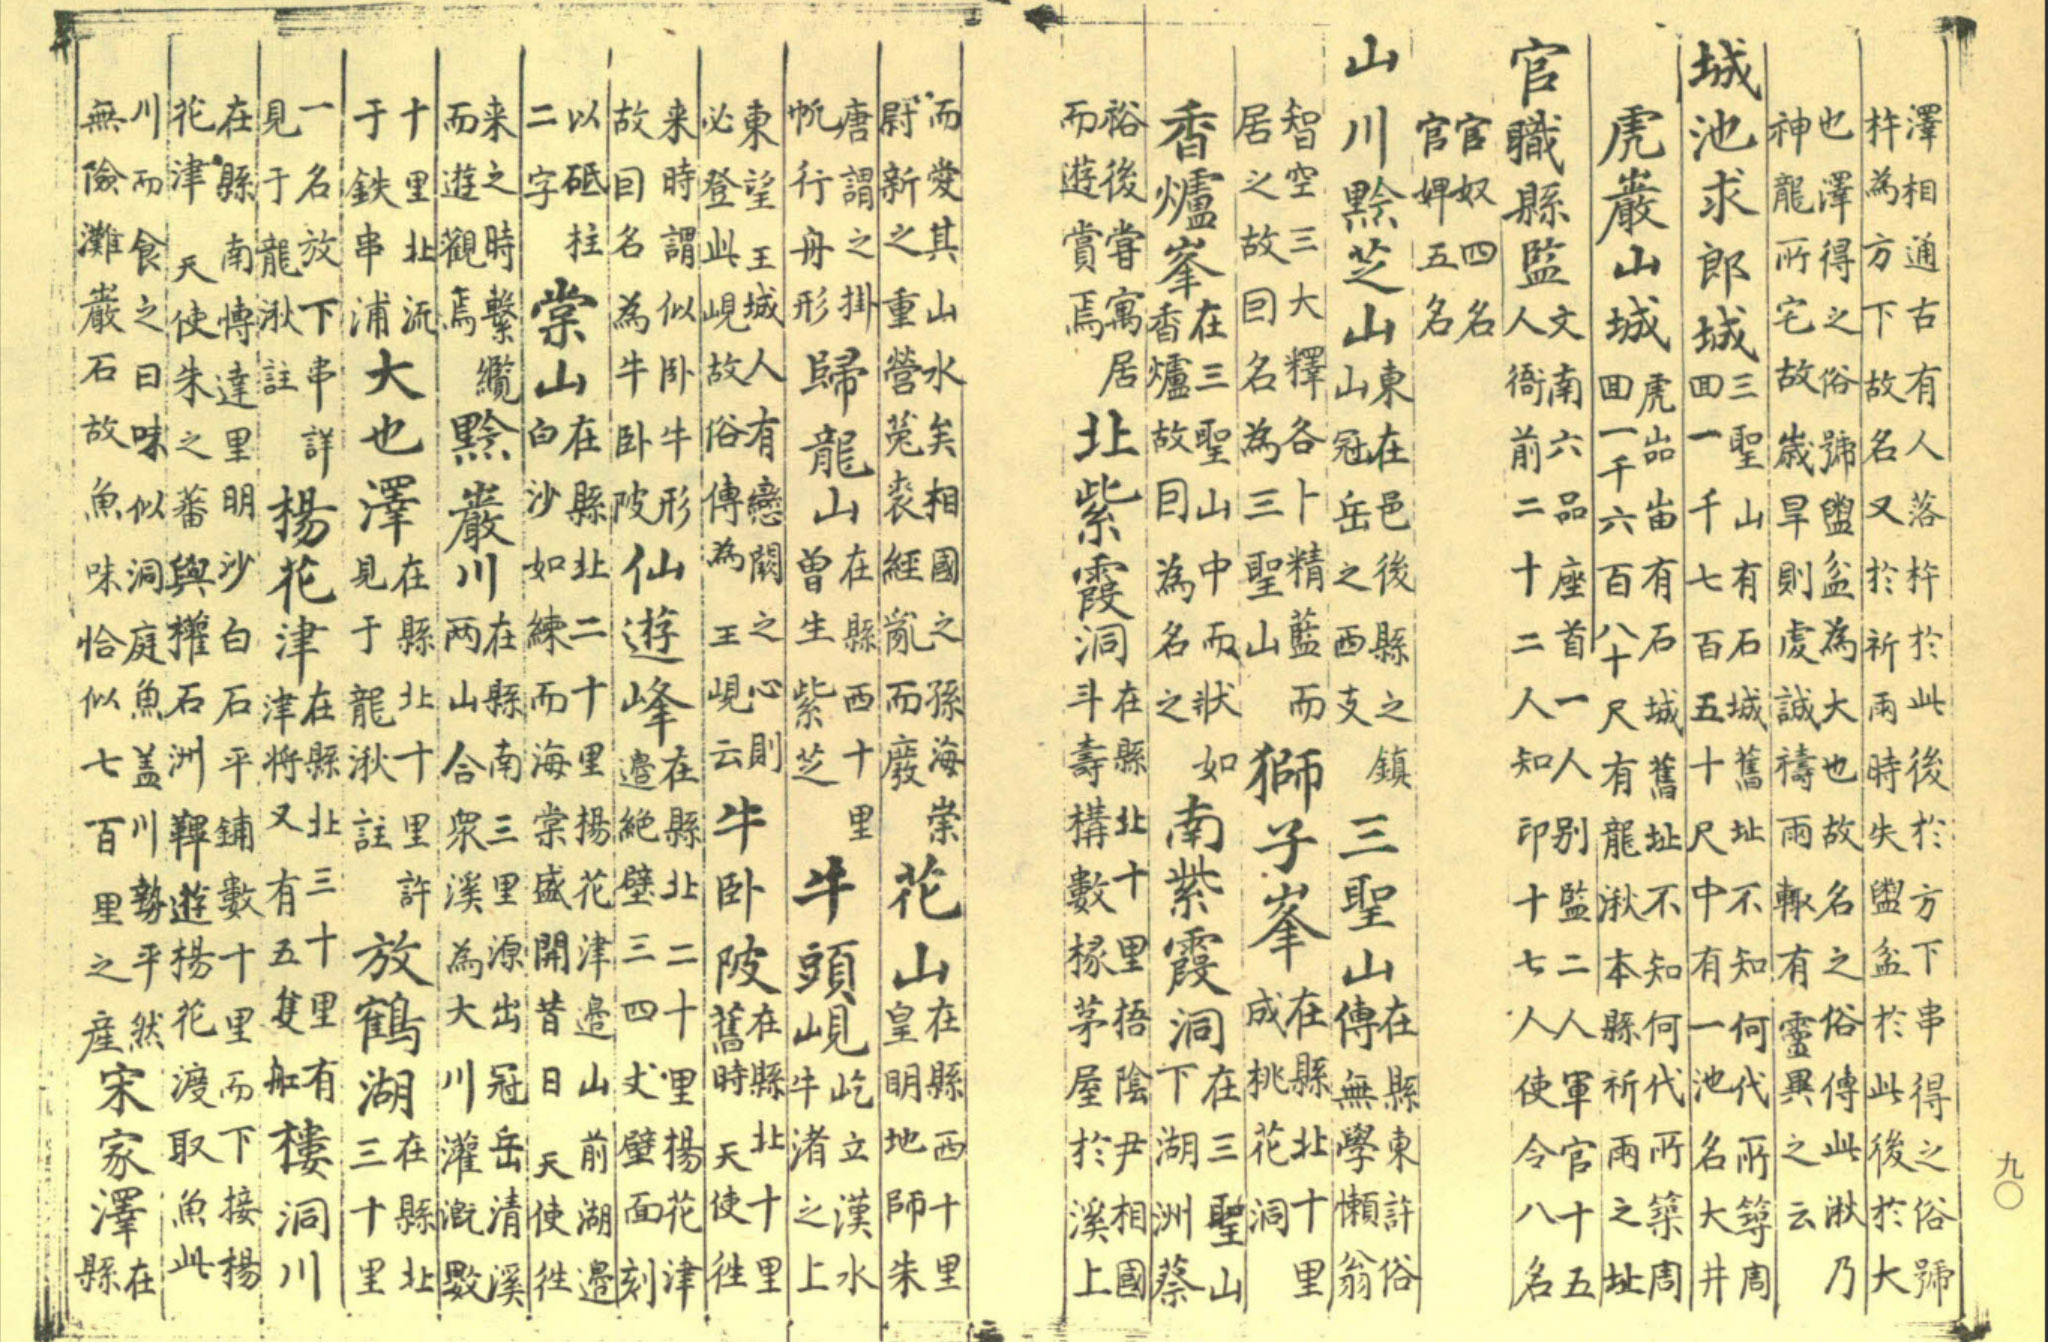 澤相通古有人落杵於此後於方下串得之俗號
杵為方下故名又於祈雨時失盥盆於此後於大
也澤得之俗號盥盆為大也故名之俗傳此湫乃
神龍所宅故歲旱則虔誠禱雨輒有靈異之云
城池求郎城三聖山有石城舊址不知何代所築周
回一千七百五十尺中有一池名大井
虎巖山城虎嵓峀有石城舊址不知何代所築周
回一千六百八十尺有龍湫本縣祈雨之址
官職縣監文南六品座首一人別監二人軍官十五
人衙前二十二人知印十七人使令八名
官奴四名
官婢五名
山川黔芝山東在邑後縣之鎮
山冠岳之西支
三聖山在縣東許俗
傳無學懶翁
智空三大釋各卜精藍而
居之故曰名為三聖山
獅子峯在縣北十里
成桃花洞
香爐峯在三聖山中而狀如
香爐故曰為名之
南紫霞洞在三聖山
下湖洲蔡
裕後嘗寓居
而遊賞焉
北紫霞洞在縣北十里梧陰尹相國
斗壽構數椽茅屋於溪上
而愛其山水矣相國之孫海崇
尉新之重營菟裘經亂而廢
花山在縣西十里
皇明地師朱
唐謂之掛
帆行舟形
歸龍山在縣西十里
曾生紫芝
牛頭峴屹立漢水
牛渚之上
東望王城人有戀闕之心則
必登此峴故俗傳為王峴云
牛卧陂在縣北十里
舊時天使徃
来時謂似卧牛形
故曰名為牛卧陂
仙遊峰在縣北二十里楊花津
邉絶壁三四丈壁面刻
以砥柱
二字
棠山在縣北二十里楊花津邉山前湖邉
白沙如練而海棠盛開昔日天使徃
来之時繫纜
而遊觀焉
黔巖川在縣南三里源出冠岳清溪
两山合衆溪為大川灌漑數
十里北流
于鉄串浦
大也澤在縣北十里許
見于龍湫註
放鶴湖在縣北
三十里
一名放下串詳
見于龍湫註
楊花津在縣北三十里有
津将又有五隻舡
樓洞川
在縣南愽達里明沙白石平鋪數十里而下接楊
花津天使朱之蕃與權石洲鞸遊楊花渡取魚此
川而食之曰味似洞庭魚盖川勢平然
無險灘巖石故魚味恰似七百里之産
宋家澤在
縣
九〇